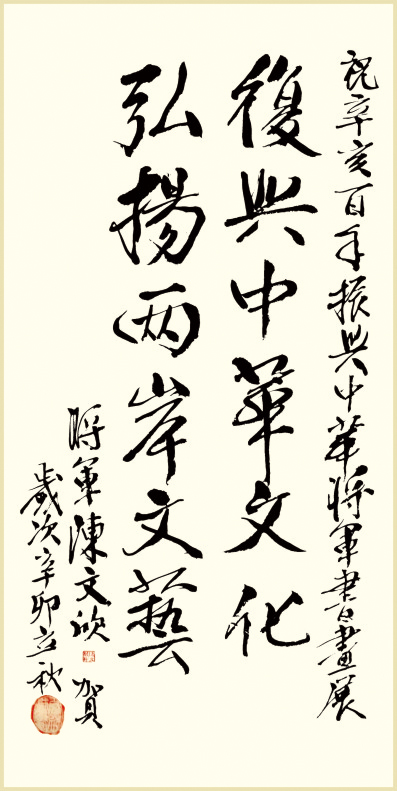 祝辛亥百年振興中華將軍書畫展
復興中華文化
弘揚兩岸文藝
將軍陳文欣賀
歲次辛卯立秋